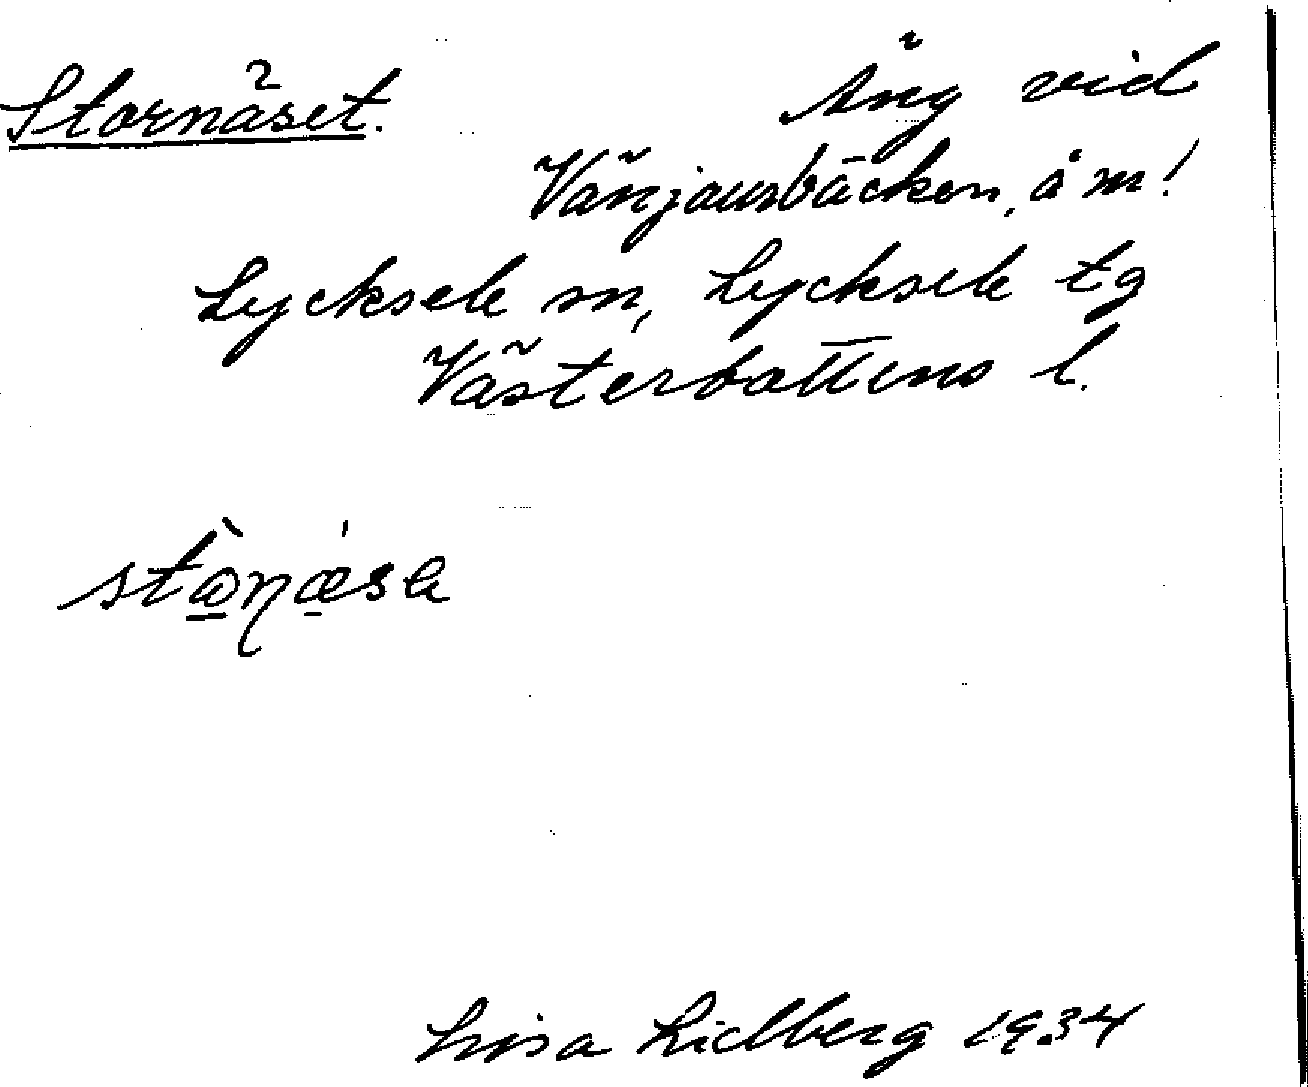 Stornäset. Äng vid
Vänjausbäcken, å m!
Lycksele sn, Lycksele tg
Västerbottens l.
stɷ̀ṇǽsa
Lisa Lidberg 1934